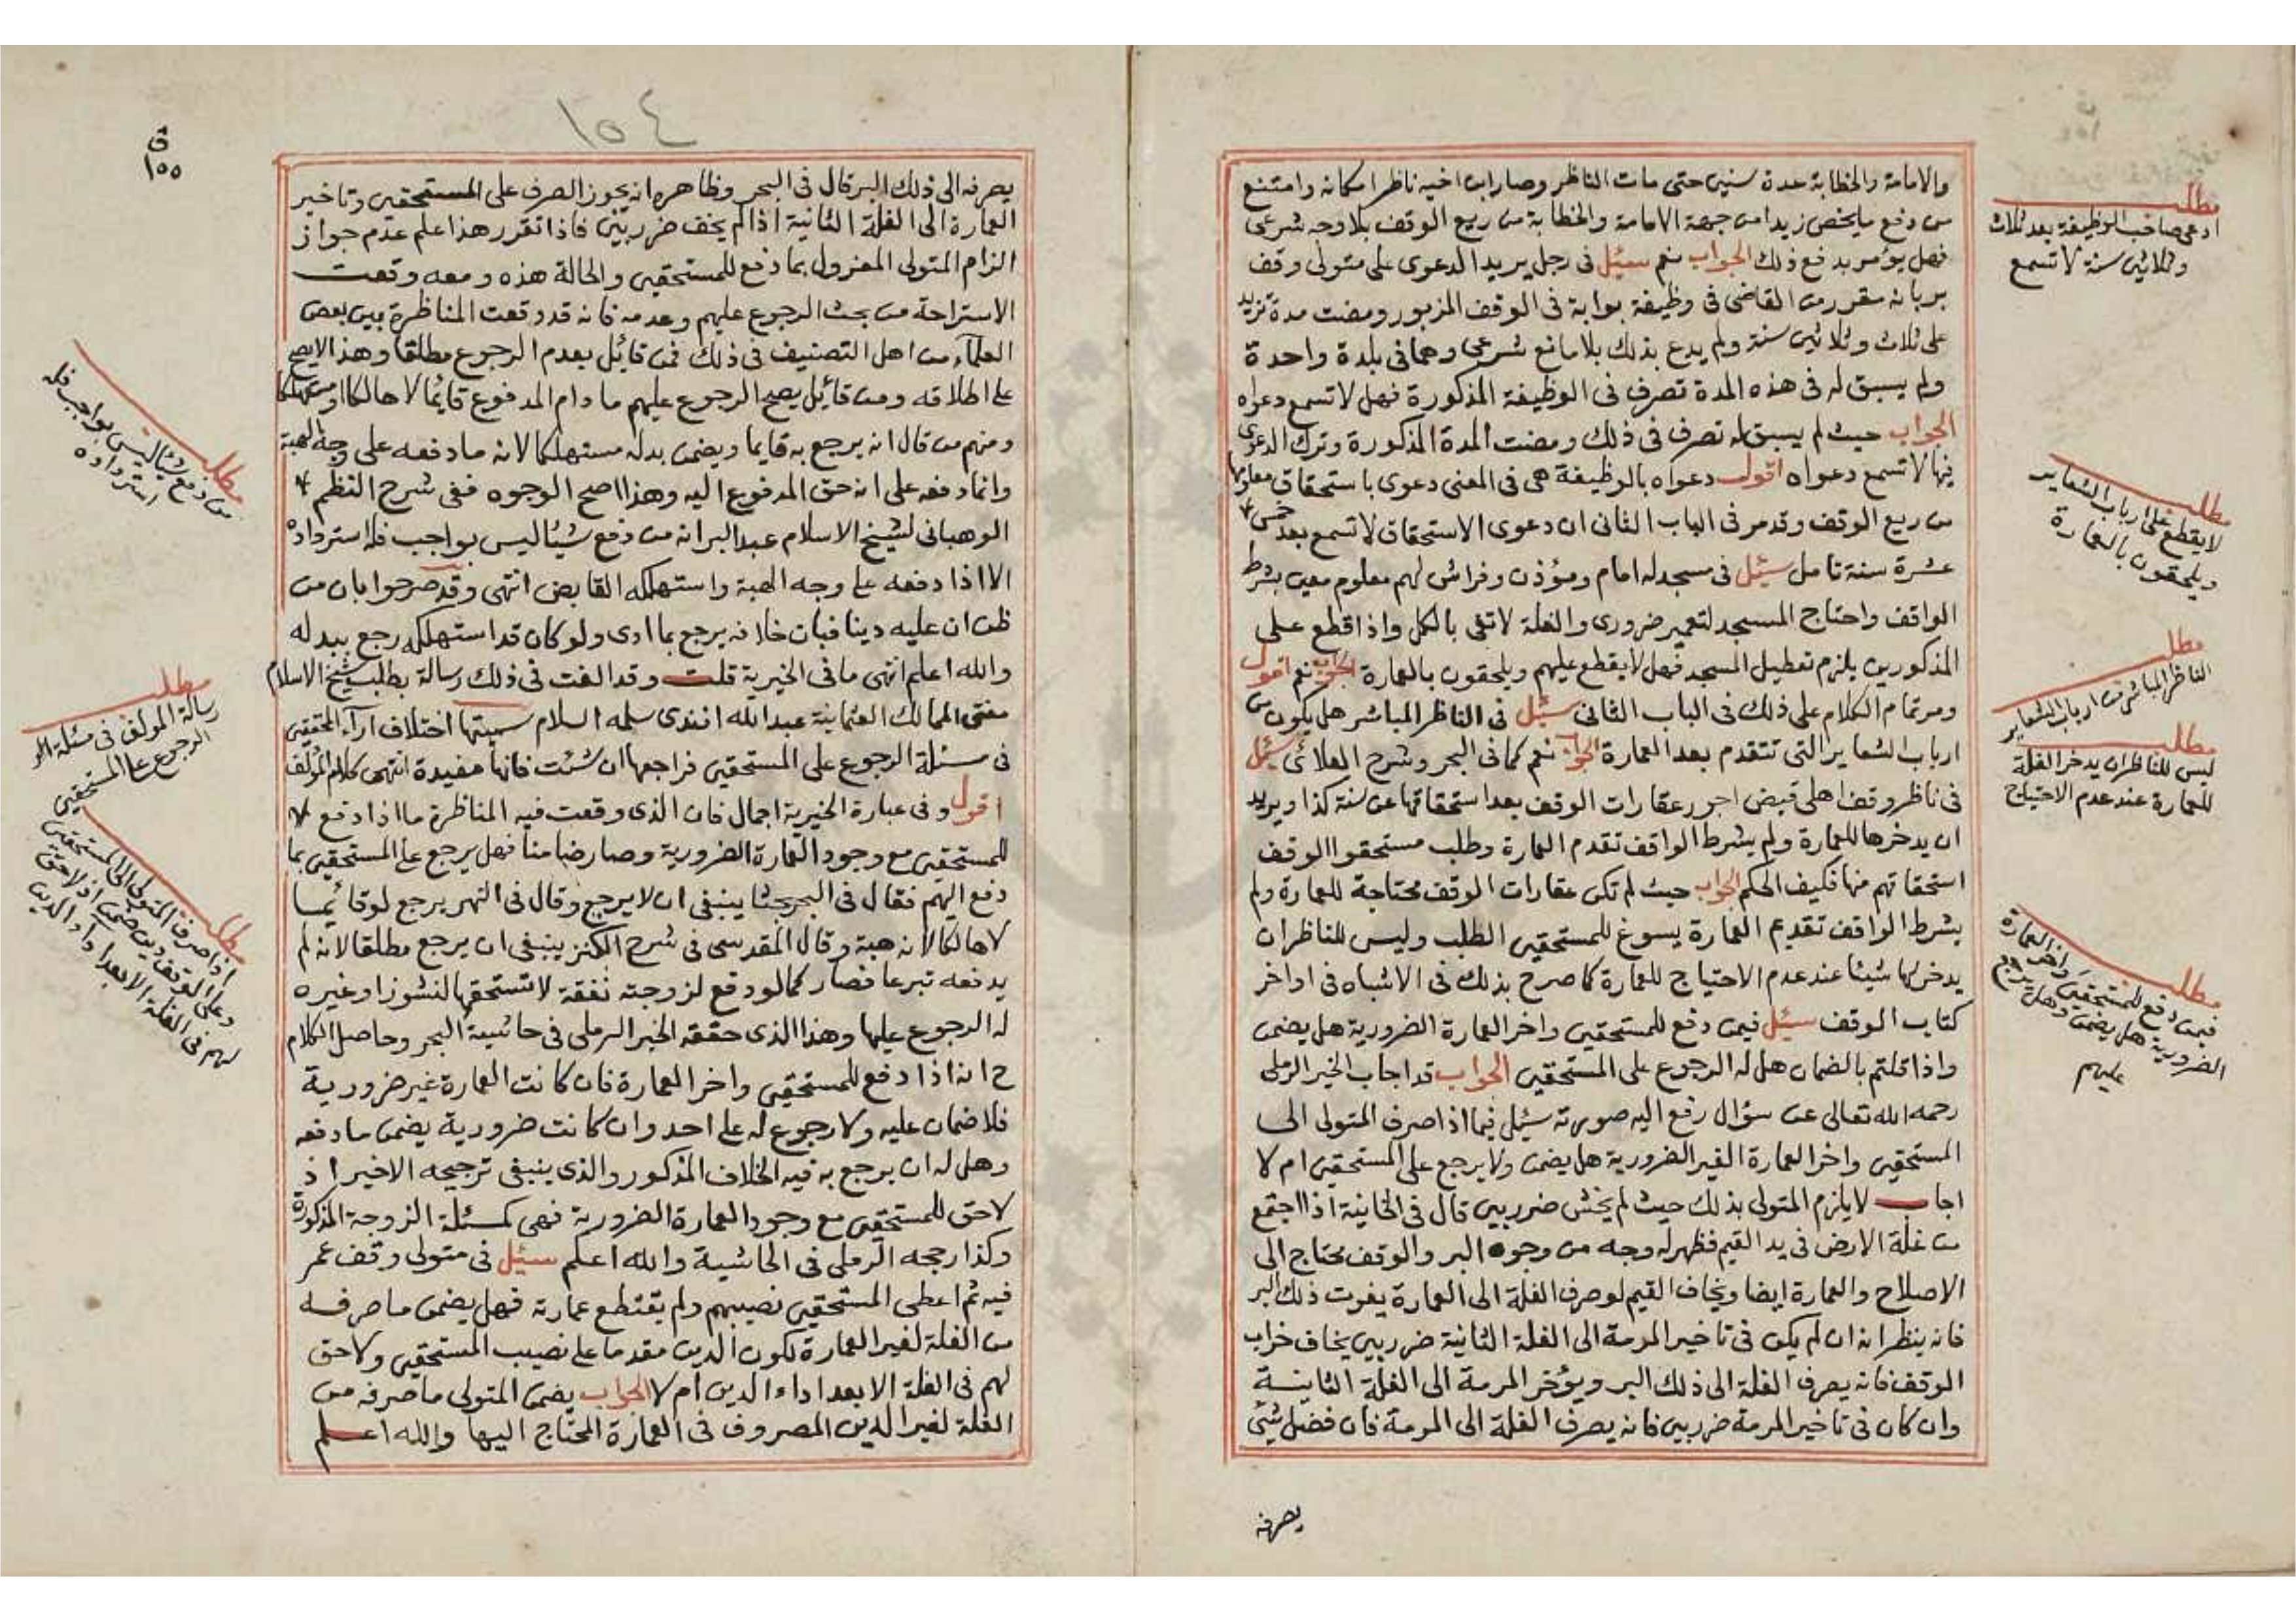 والامامة والخطابة عدة سنين حتى مات الناظر وصار ابن اخيه ناظرا مكانه وامتنع
من دفع ما يخص زيدا من جهة الامامة والخطابة من ريع الوقف بلا وجه شرعى
فهل يؤمر بدفع ذلك الجواب نعم سئيل فى رجل يريد الدعوى على متولى وقف
بر بانه مقرر من القاضى فى وظيفة بوابة فى الوقف المزبور ومضت مدة تزيد
على ثلاث وثلاثين سنة ولم يدع بذلك بلا مانع شرعى وهما فى بلدة واحدة
ولم يسبق له فى هذه المدة تصرف فى الوظيفة المذكورة فهل لا تسمع دعواه
الجواب حيث لم يسبق له تصرف فى ذلك ومضت المدة المذكورة وترك الدعوى
فيها لا تسمع دعواه اقول دعواه بالوظيفة هى فى المعنى دعوى باستحقاق معلومها
من ريع الوقف وقد مر فى الباب الثانى ان دعوى الاستحقاق لا تسمع بعد خمس
عشرة سنة تامل سئيل فى مسجد له امام ومؤذن وفراش لهم معلوم معين بشرط
الواقف واحتاج المسجد لتعمير ضرورى والغلة لا تفى بالكل واذا قطع على
المذكورين يلزم تعطيل المسجد فهل لا يقطع عليهم ويلحقون بالعمارة الجواب نعم اقول
ومر تمام الكلام على ذلك فى الباب الثانى سئيل فى الناظر المباشر هل يكون من
ارباب الشعاير التى تتقدم بعد العمارة الجواب نعم كما فى البحر وشرح العلائى سئيل
فى ناظر وقف اهلى قبض اجور عقارات الوقف بعد استحقاقها عن سنة كذا ويريد
ان يدخرها للعمارة ولم يشرط الواقف تقدم العمارة وطلب مستحقوا الوقف
استحقاقهم منها فكيف الحكم الجواب حيث لم تكن عقارات الوقف محتاجة للعمارة ولم
يشرط الواقف تقديم العمارة يسوغ للمستحقين الطلب وليس للناظر ان
يدخر لها شيئا عند عدم الاحتياج للعمارة كما صرح بذلك فى الاشباه فى اواخر
كتاب الوقف سئيل فيمن دفع للمستحقين واخر العمارة الضرورية هل يضمن
واذا قلتم بالضمان هل له الرجوع على المستحقين الجواب قد اجاب الخير الرملى
رحمه الله تعالى عن سؤال رفع اليه صورته سئيل فيما اذا صرف المتولى الى
المستحقين واخر العمارة الغير الضرورية هل يضمن ولا يرجع على المستحقين ام لا
اجاب لا يلزم المتولى بذلك حيث لم يخش ضرر بين قال فى الخانية اذا اجتمع
من غلة الارض فى يد القيم فظهر له وجه من وجوه البر والوقف محتاج الى
الاصلاح والعمارة ايضا ويخاف القيم لو صرف الغلة الى العمارة يفوت ذلك البر
فانه ينظر انه ان لم يكن فى تاخير المرمة الى الغلة الثانية ضرر بين يخاف خراب
الوقف فانه يصرف الغلة الى ذلك البر ويؤخر المرمة الى الغلة الثانية
وان كان فى تاخير المرمة ضرر بين فانه يصرف الغلة الى المرمة فان فضل شئ
يصرفه
مطلب
ادعى صاحب الوظيفة بعد ثلاث
وثلاثين سنة لا تسمع
مطلب
لا يقطع على ارباب الشعاير
ويلحقون بالعمارة
مطلب
الناظر المباشر من ارباب الشعاير
مطلب
ليس للناظر ان يدخر الغلة
للعمارة عند عدم الاحتياج
مطلب
فيمن دفع للمستحقين واخر العمارة
الضرورية هل يضمن وهل يرجع
عليهم
١٥٤
ق
١٥٥
يصرفه الى ذلك البر قال فى البحر وظاهره انه يجوز الصرف على المستحقين وتاخير
العمارة الى الغلة الثانية اذا لم يخف ضرر بين فاذا تقرر هذا علم عدم جواز
الزام المتولى المعزول بما دفع للمستحقين والحالة هذه ومعه وقعت
الاستراحة من بحث الرجوع عليهم وعدمه فانه قد وقعت المناظرة بين بعض
العلماء من اهل التصنيف فى ذلك فمن قائل بعدم الرجوع مطلقا وهذا لا يصح
على اطلاقه ومن قائل يصح الرجوع عليهم ما دام المدفوع قائما لا هالكا او مستهلكا
ومنهم من قال انه يرجع به قايما ويضمن بدله مستهلكا لانه ما دفعه على وجه الهبة
وانما دفعه على انه حق المدفوع اليه وهذا اصح الوجوه ففى شرح النظم
الوهبانى لشيخ الاسلام عبد البر انه من دفع شيئا ليس بواجب فله استرداده
الا اذا دفعه على وجه الهبة واستهلكه القابض انتهى وقد صرحوا بان من
ظن ان عليه دينا فبان خلافه يرجع بما ادى ولو كان قد استهلكه رجع ببدله
والله اعلم انتهى ما فى الخيرية قلت وقد الفت فى ذلك رسالة بطلب شيخ الاسلام
مفتى الممالك العثمانية عبد الله افندى سلمه السلام سميتها اختلاف آراء المحققين
فى مسئلة الرجوع على المستحقين فراجعها ان شئت فانها مفيدة انتهى كلام المؤلف
اقول وفى عبارة الخيرية اجمال فان الذى وقعت فيه المناظرة ما اذا دفع
للمستحقين مع وجود العمارة الضرورية وصار ضامنا فهل يرجع على المستحقين بما
دفع اليهم فقال فى البحر بحثا ينبغى ان لا يرجع وقال فى النهر يرجع لو قائما
لا هالكا لانه هبة وقال المقدسى فى شرح الكنز ينبغى ان يرجع مطلقا لانه لم
يدفعه تبرعا فصار كما لو دفع لزوجته نفقة لا تستحقها لنشوز او غيره
له الرجوع عليها وهذا الذى حققه الخير الرملى فى حاشية البحر وحاصل الكلام
ح انه اذا دفع للمستحقين واخر العمارة فان كانت العمارة غير ضرورية
فلا ضمان عليه ولا رجوع له على احد وان كانت ضرورية يضمن ما دفعه
وهل له ان يرجع به فيه الخلاف المذكور والذى ينبغى ترجيحه الاخير اذ
لا حق للمستحقين مع وجود العمارة الضرورية فهى كمسئلة الزوجة المذكورة
وكذا رجحه الرملى فى الحاشية والله اعلم سئيل فى متولى وقف عمر
فيه ثم اعطى المستحقين نصيبهم ولم يقتطع عمارته فهل يضمن ما صرفه
من الغلة لغير العمارة لكون الدين مقدما على نصيب المستحقين ولا حق
لهم فى الغلة الا بعد اداء الدين ام لا الجواب يضمن المتولى ما صرفه من
الغلة لغير الدين المصروف فى العمارة المحتاج اليها والله اعلم
مطلب
من دفع شيئا ليس بواجب فله
استرداده
مطلب
رسالة المؤلف فى مسئلة
الرجوع على المستحقين
مطلب
اذا صرف المتولى الى المستحقين
وعلى الوقف دين ضمن اذ لا حق
لهم فى الغلة الا بعد اداء الدين